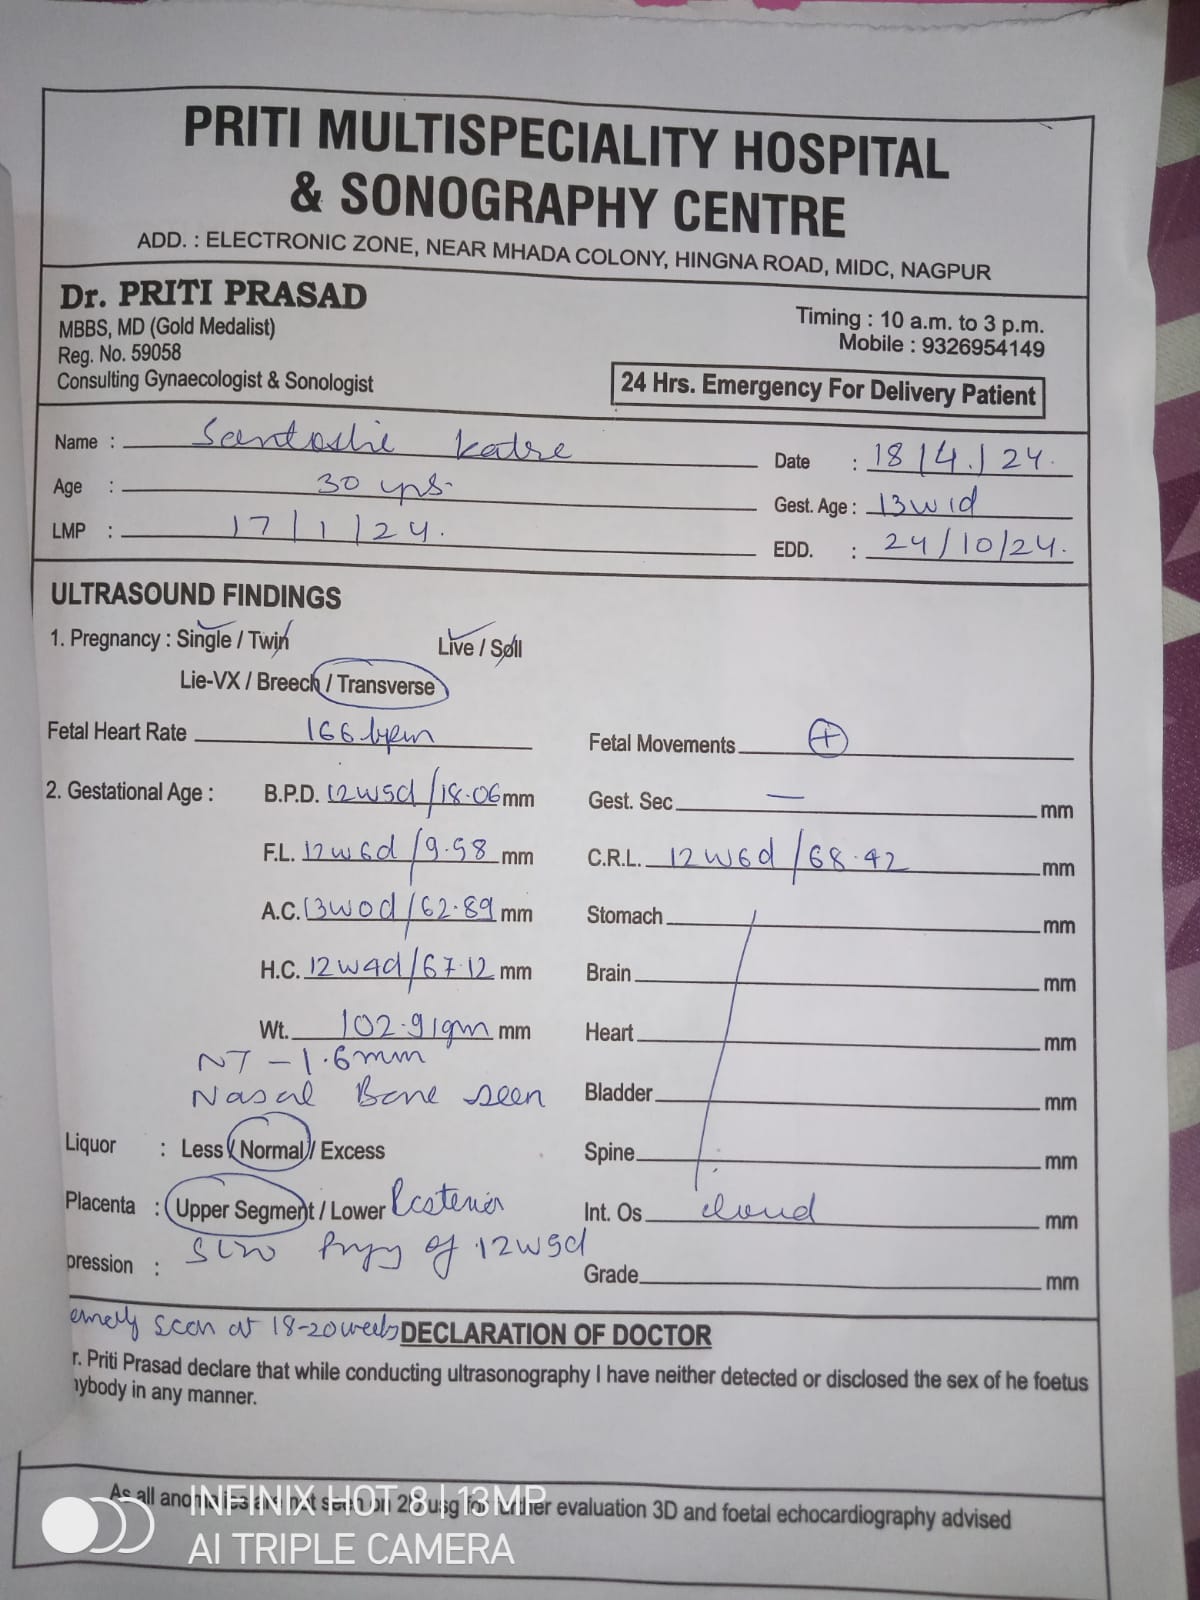 PRITI MULTISPECIALITY HOSPITAL
& SONOGRAPHY CENTRE
ADD. : ELECTRONIC ZONE, NEAR MHADA COLONY, HINGNA ROAD, MIDC, NAGPUR
Dr. PRITI PRASAD
MBBS, MD (Gold Medalist)
Reg. No. 59058
Consulting Gynaecologist & Sonologist
Timing : 10 a.m. to 3 p.m.
Mobile : 9326954149
24 Hrs. Emergency For Delivery Patient
Name : Santoshi Katre
Date : 18/4/24.
Age : 30 yrs.
Gest. Age : 13w1d
LMP : 17/1/24.
EDD. : 24/10/24.
ULTRASOUND FINDINGS
1. Pregnancy : Single / Twin Live / Soll
Lie-VX / Breech / Transverse
Fetal Heart Rate 166 bpm Fetal Movements +
2. Gestational Age : B.P.D. 12w5d/18.06 mm Gest. Sec — mm
F.L. 12w6d/9.58 mm C.R.L. 12w6d/68.42 mm
A.C. 13w0d/62.89 mm Stomach mm
H.C. 12w4d/67.12 mm Brain mm
Wt. 102.91gm mm Heart mm
NT - 1.6mm
Nasal Bone seen Bladder mm
Liquor : Less / Normal / Excess Spine mm
Placenta : Upper Segment / Lower Posterior Int. Os closed mm
pression : of 12w5d
Grade mm
scan at 18-20 weeks DECLARATION OF DOCTOR
r. Priti Prasad declare that while conducting ultrasonography I have neither detected or disclosed the sex of he foetus
nybody in any manner.
As all on 2D usg for further evaluation 3D and foetal echocardiography advised
INFINIX HOT 8 | 13MP
AI TRIPLE CAMERA